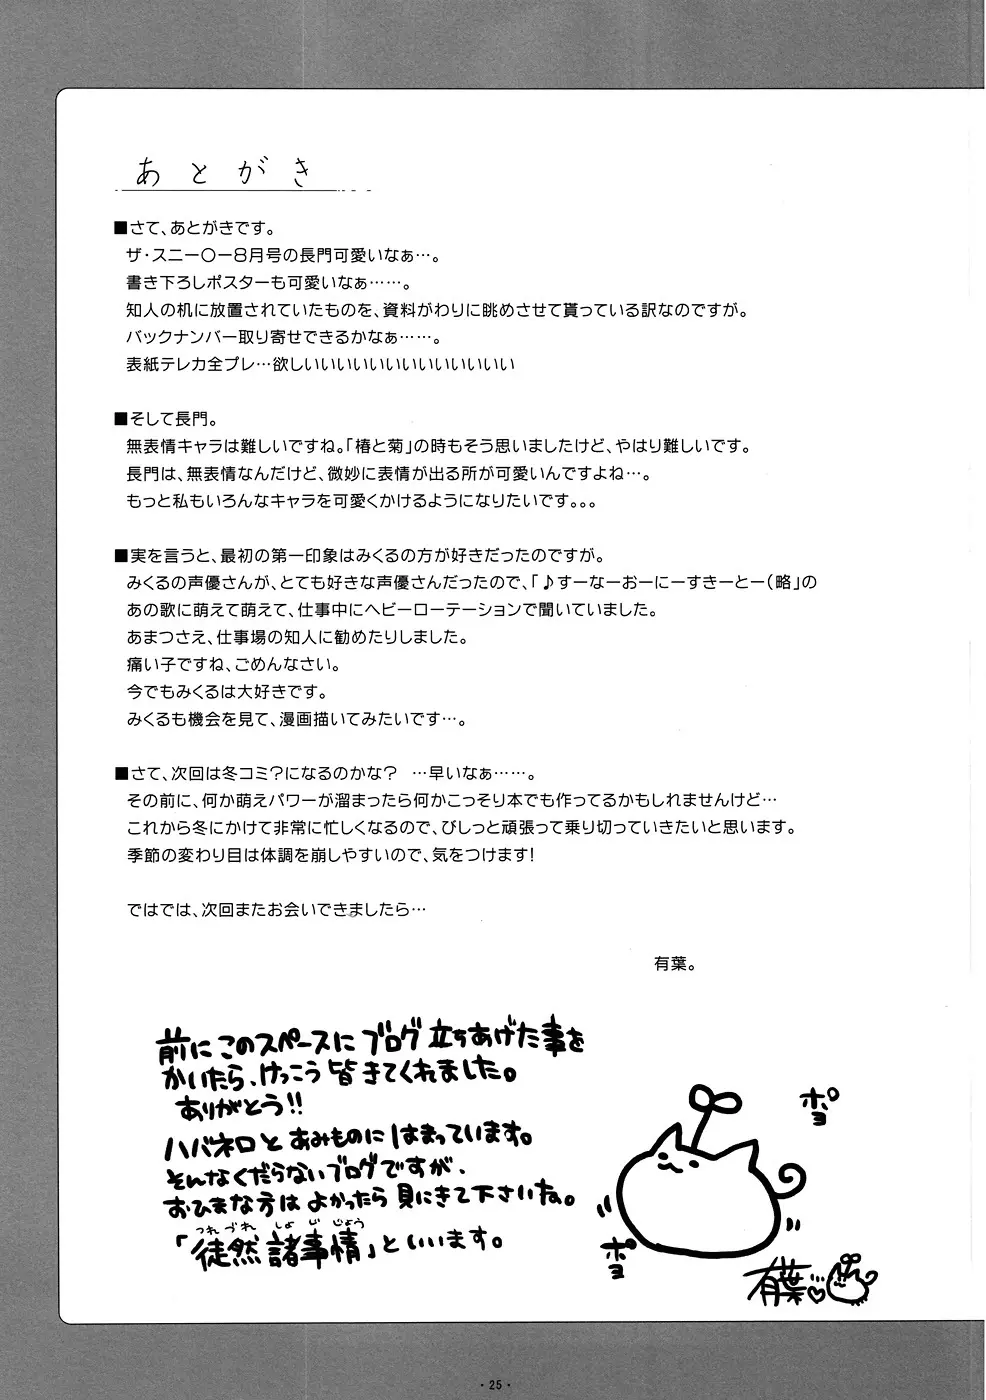 あとがき
■さて、あとがきです。
ザ・スニー〇ー8月号の長門可愛いなぁ…。
書き下ろしポスターも可愛いなぁ……。
知人の机に放置されていたものを、資料がわりに眺めさせて貰っている訳なのですが。
バックナンバー取り寄せできるかなぁ……。
表紙テレカ全プレ…欲しいいいいいいいいいいいいいい
■そして長門。
無表情キャラは難しいですね。「椿と菊」の時もそう思いましたけど、やはり難しいです。
長門は、無表情なんだけど、微妙に表情が出る所が可愛いんですよね…。
もっと私もいろんなキャラを可愛くかけるようになりたいです。。。
■実を言うと、最初の第一印象はみくるの方が好きだったのですが。
みくるの声優さんが、とても好きな声優さんだったので、「♪すーなーおーにーすきーとー(略」の
あの歌に萌えて萌えて、仕事中にヘビーローテーションで聞いていました。
あまつさえ、仕事場の知人に勧めたりしました。
痛い子ですね、ごめんなさい。
今でもみくるは大好きです。
みくるも機会を見て、漫画描いてみたいです…。
■さて、次回は冬コミ?になるのかな? …早いなぁ……。
その前に、何か萌えパワーが溜まったら何かこっそり本でも作ってるかもしれませんけど…
これから冬にかけて非常に忙しくなるので、びしっと頑張って乗り切っていきたいと思います。
季節の変わり目は体調を崩しやすいので、気をつけます!
ではでは、次回またお会いできましたら…
有葉。
前にこのスペースにブログ立ちあげた事を
かいたら、けっこう皆きてくれました。
ありがとう!!
ハバネロとあみものにはまっています。
そんなくだらないブログですが、
おひまな方はよかったら見にきて下さいね。
つれづれ しょじじょう
「徒然諸事情」といいます。
ポヨ
ポヨ
有葉
・25・